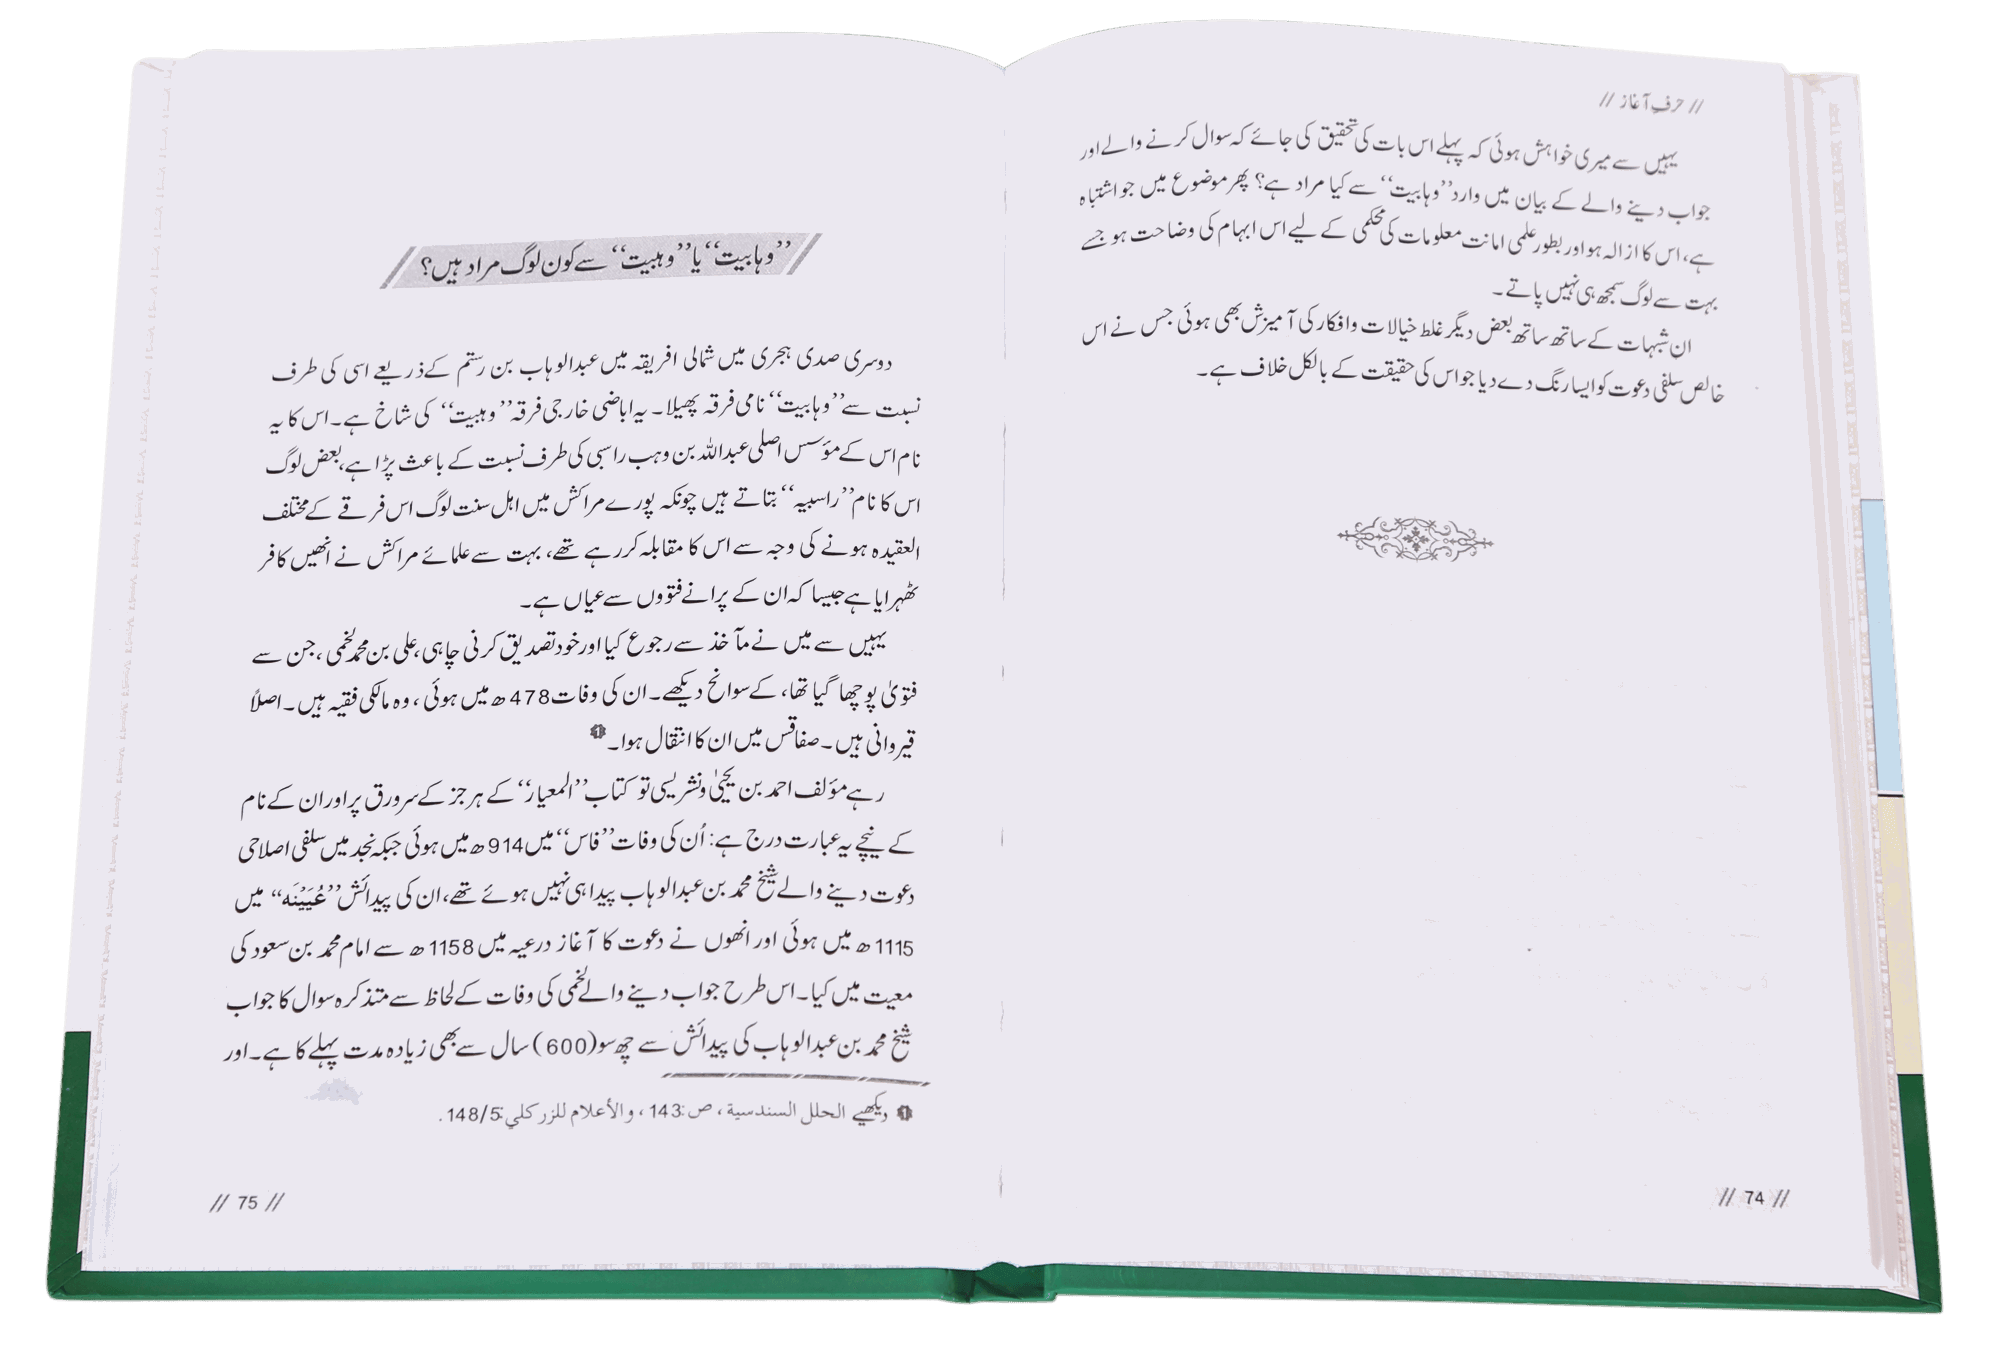 // حرفِ آغاز //
یہیں سے میری خواہش ہوئی کہ پہلے اس بات کی تحقیق کی جائے کہ سوال کرنے والے اور
جواب دینے والے کے بیان میں وارد ’’وہابیت‘‘ سے کیا مراد ہے؟ پھر موضوع میں جو اشتباہ
ہے، اس کا ازالہ ہو اور بطور علمی امانت معلومات کی محکمی کے لیے اس ابہام کی وضاحت ہو جسے
بہت سے لوگ سمجھ ہی نہیں پاتے۔
ان شبہات کے ساتھ ساتھ بعض دیگر غلط خیالات و افکار کی آمیزش بھی ہوئی جس نے اس
خالص سلفی دعوت کو ایسا رنگ دے دیا جو اس کی حقیقت کے بالکل خلاف ہے۔
// 74 //
’’وہابیت‘‘ یا ’’وہبیت‘‘ سے کون لوگ مراد ہیں؟
دوسری صدی ہجری میں شمالی افریقہ میں عبدالوہاب بن رستم کے ذریعے اسی کی طرف
نسبت سے ’’وہابیت‘‘ نامی فرقہ پھیلا۔ یہ اباضی خارجی فرقہ ’’وہبیت‘‘ کی شاخ ہے۔ اس کا یہ
نام اس کے مؤسس اصلی عبداللہ بن وہب راسبی کی طرف نسبت کے باعث پڑا ہے، بعض لوگ
اس کا نام ’’راسبیہ‘‘ بتاتے ہیں چونکہ پورے مراکش میں اہل سنت لوگ اس فرقے کے مختلف
العقیدہ ہونے کی وجہ سے اس کا مقابلہ کر رہے تھے، بہت سے علمائے مراکش نے انھیں کافر
ٹھہرایا ہے جیسا کہ ان کے پرانے فتووں سے عیاں ہے۔
یہیں سے میں نے مآخذ سے رجوع کیا اور خود تصدیق کرنی چاہی، علی بن محمد لخمی، جن سے
فتویٰ پوچھا گیا تھا، کے سوانح دیکھے۔ ان کی وفات 478ھ میں ہوئی، وہ مالکی فقیہ ہیں۔ اصلاً
قیروانی ہیں۔ صفاقس میں ان کا انتقال ہوا۔ ❶
رہے مؤلف احمد بن یحییٰ ونشریسی تو کتاب ’’المعیار‘‘ کے ہر جز کے سرورق پر اور ان کے نام
کے نیچے یہ عبارت درج ہے: اُن کی وفات ’’فاس‘‘ میں 914ھ میں ہوئی جبکہ نجد میں سلفی اصلاحی
دعوت دینے والے شیخ محمد بن عبدالوہاب پیدا ہی نہیں ہوئے تھے، ان کی پیدائش ’’عُیَیْنَہ‘‘ میں
1115ھ میں ہوئی اور انھوں نے دعوت کا آغاز درعیہ میں 1158ھ سے امام محمد بن سعود کی
معیت میں کیا۔ اس طرح جواب دینے والے لخمی کی وفات کے لحاظ سے متذکرہ سوال کا جواب
شیخ محمد بن عبدالوہاب کی پیدائش سے چھ سو (600) سال سے بھی زیادہ مدت پہلے کا ہے۔ اور
❶ دیکھیے الحلل السندسیة، ص:143، والأعلام للزركلي:148/5.
// 75 //